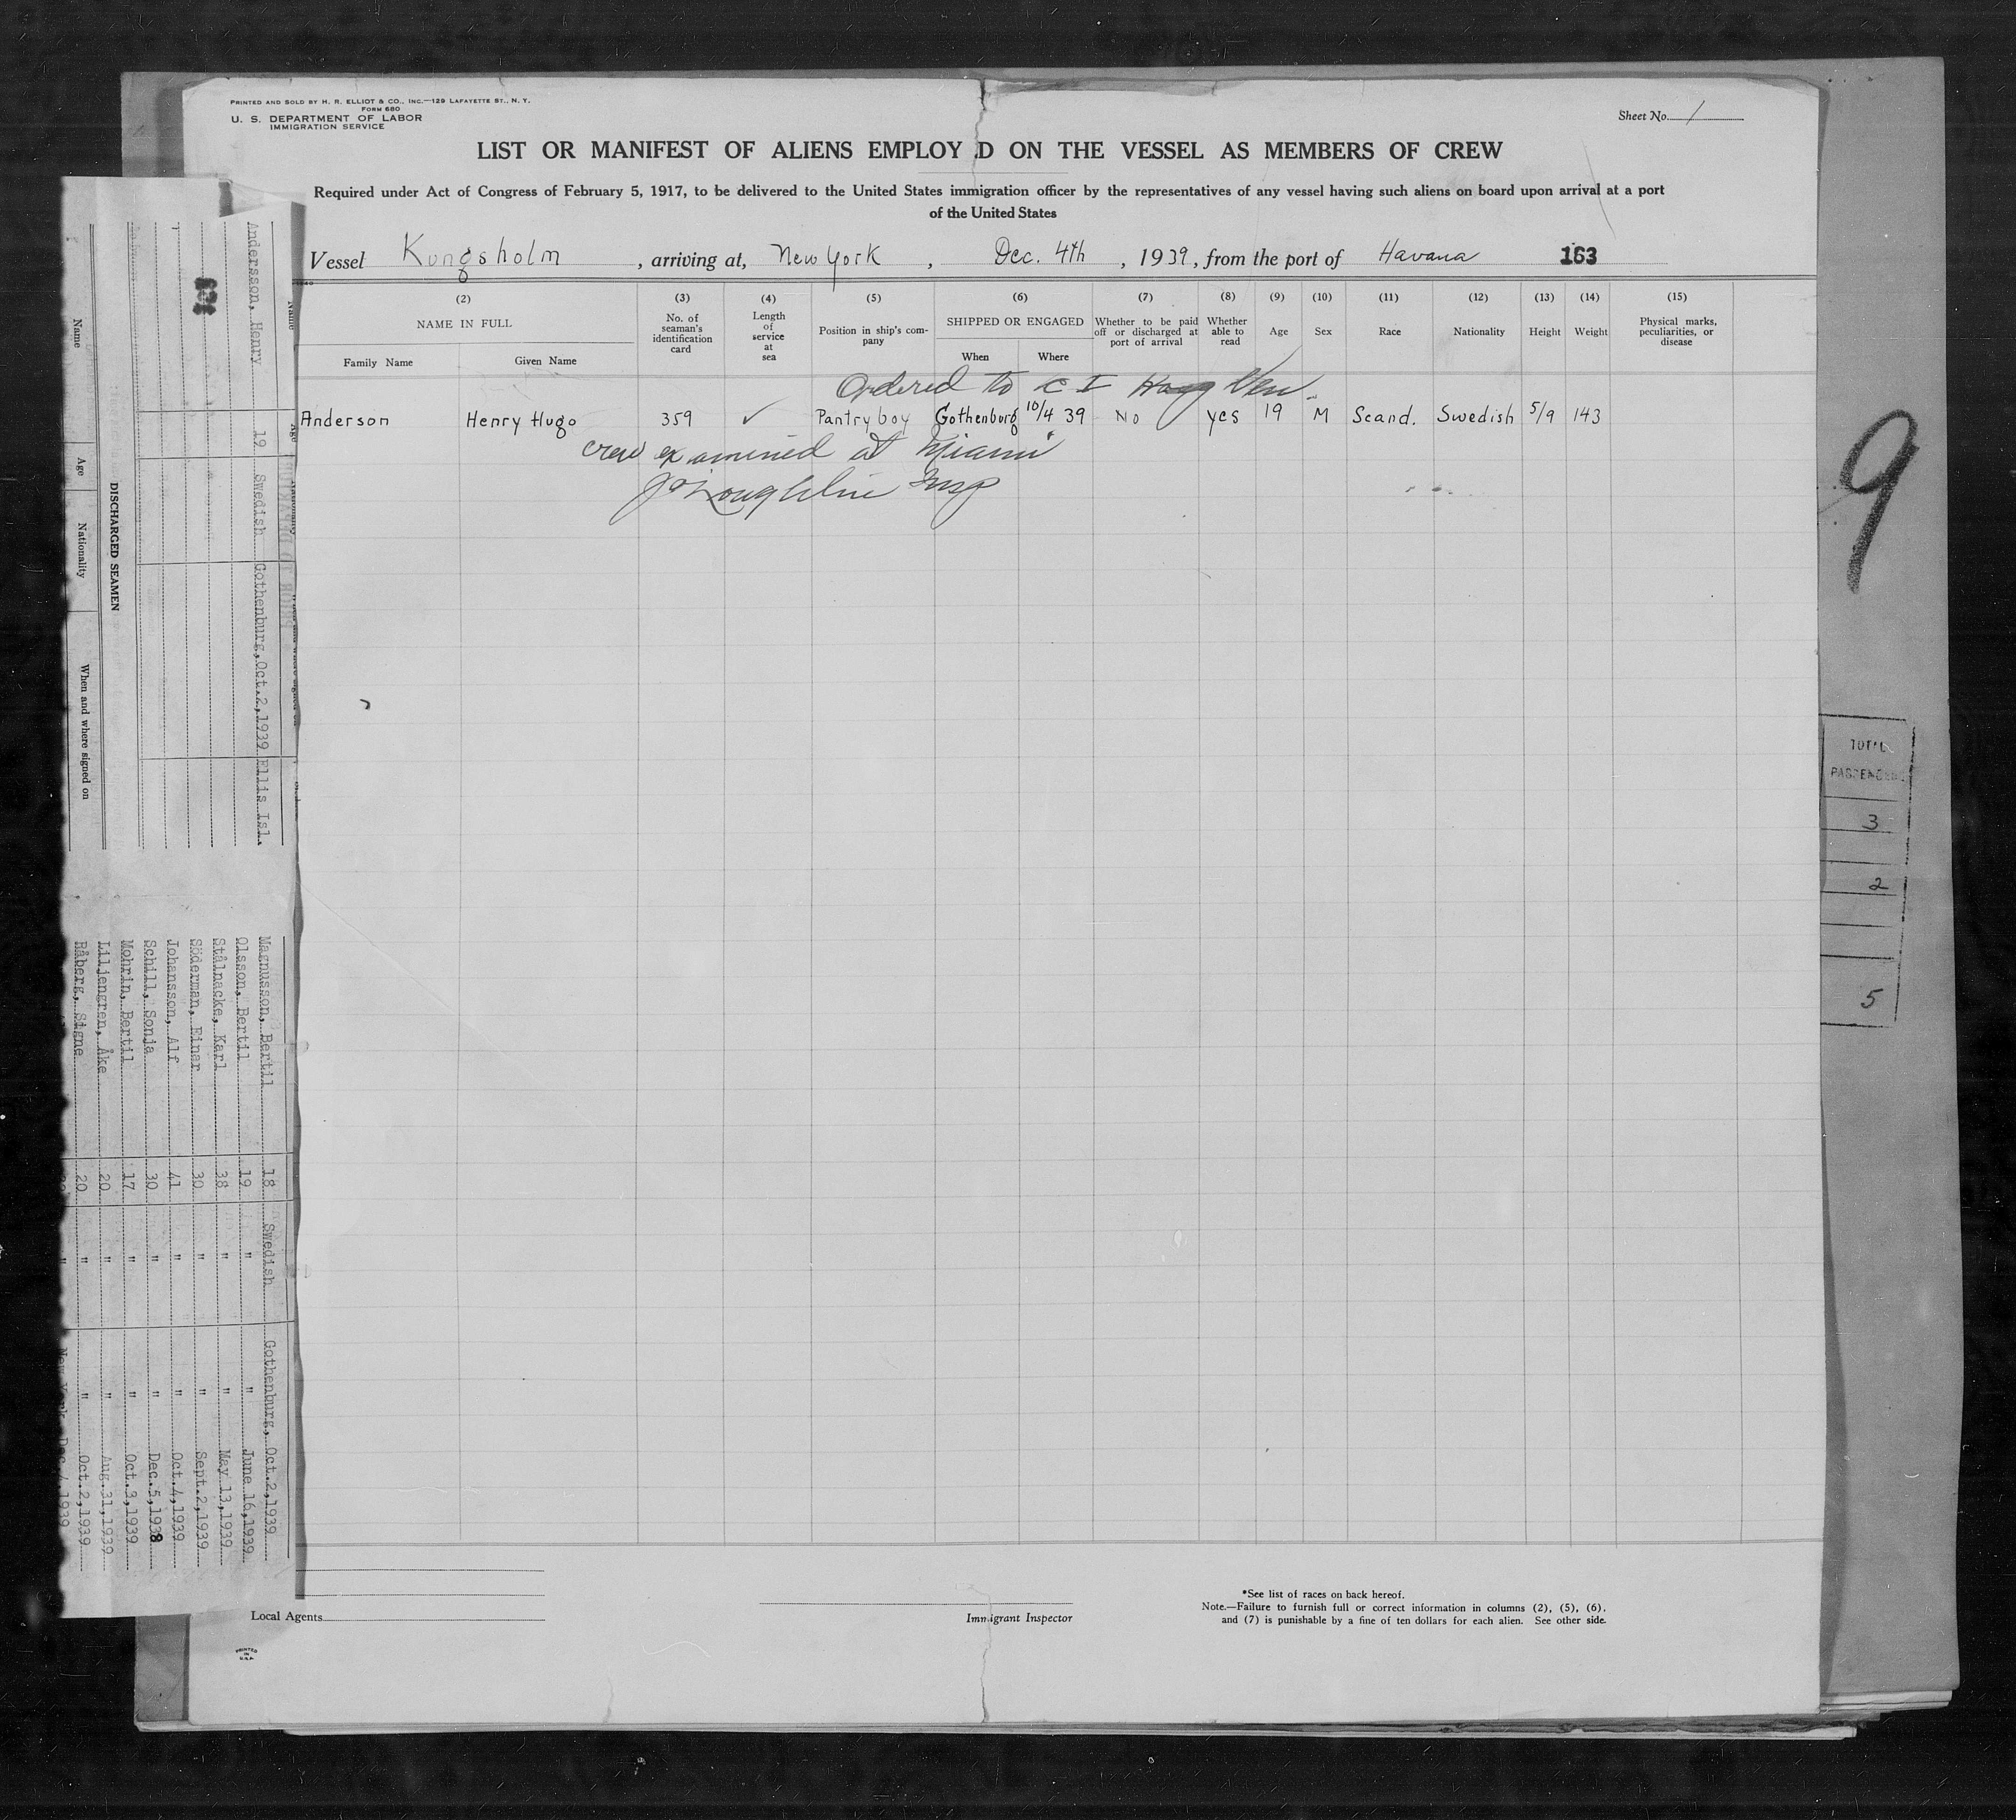 PRINTED AND SOLD BY H. R. ELLIOT & CO., INC.—129 LAFAYETTE ST., N. Y.
FORM 680
U. S. DEPARTMENT OF LABOR
IMMIGRATION SERVICE
Sheet No. 1
LIST OR MANIFEST OF ALIENS EMPLOY D ON THE VESSEL AS MEMBERS OF CREW
Required under Act of Congress of February 5, 1917, to be delivered to the United States immigration officer by the representatives of any vessel having such aliens on board upon arrival at a port
of the United States
Vessel Kungsholm, arriving at, New York, Dec. 4th, 1939, from the port of Havana 163
(2) (3) (4) (5) (6) (7) (8) (9) (10) (11) (12) (13) (14) (15)
NAME IN FULL
Family Name
Given Name
No. of seaman's identification card
Length of service at sea
Position in ship's company
SHIPPED OR ENGAGED
When
Where
Whether to be paid off or discharged at port of arrival
Whether able to read
Age
Sex
Race
Nationality
Height
Weight
Physical marks, peculiarities, or disease
Ordered to
Anderson Henry Hugo 359 ✓ Pantry boy Gothenburg 10/4 39 No yes 19 M Scand. Swedish 5/9 143
crew examined at Miami
Insp
Local Agents
Immigrant Inspector
*See list of races on back hereof.
Note.—Failure to furnish full or correct information in columns (2), (5), (6),
and (7) is punishable by a fine of ten dollars for each alien. See other side.
PRINTED IN U.S.A.
9
PASSENGE
3
2
5
Name
Age
Nationality
When and where signed on
DISCHARGED SEAMEN
163
Name
Andersson, Henry 19 Swedish Gothenburg, Oct.2,1939 Ellis Isl.
Magnusson, Bertil 18 Swedish Gothenburg, Oct.2,1939
Olsson, Bertil 19 " " June 16,1939
Stålnacke, Karl 38 " " May 13,1939
Söderman, Einar 30 " " Sept.2,1939
Johansson, Alf 41 " " Oct.4,1939
Schill, Sonja 30 " " Dec.5,1938
Mohrin, Bertil 17 " " Oct.3,1939
Liljengren, Åke 20 " " Aug.31,1939
Råberg, Signe 20 " " Oct.2,1939
" New York Dec.4,1939